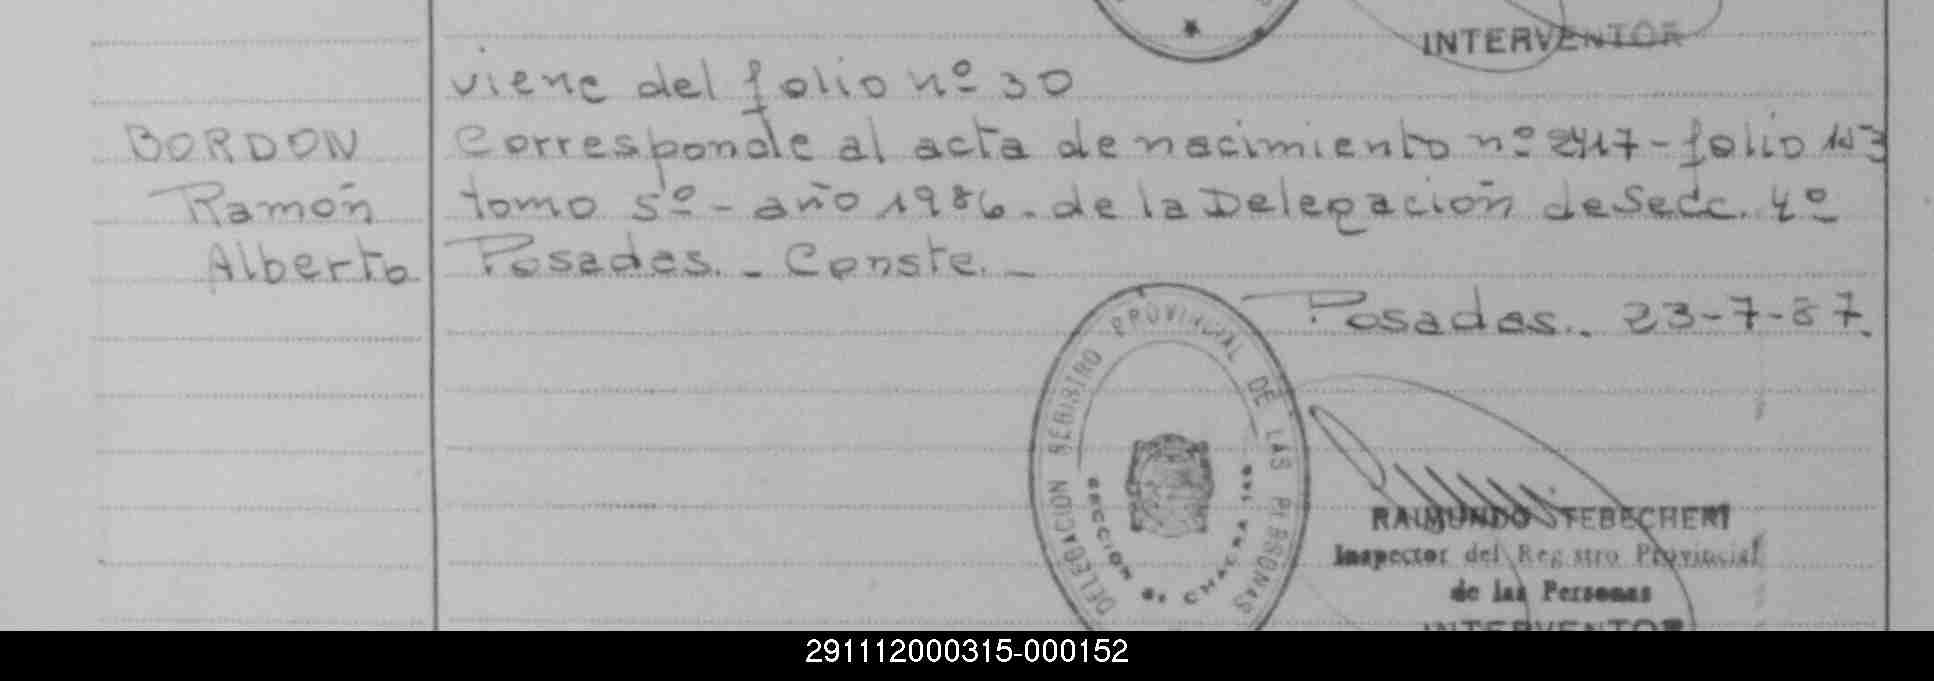 INTERVENTOR
viene del folio nº 30
BORDON
Ramón
Alberto
Corresponde al acta de nacimiento nº 2417 - folio 153
tomo 5º - año 1986. de la Delegación de Secc. 4º
Posadas. - Conste. -
Posadas. 23-7-87.
DELEGACION REGISTRO PROVINCIAL DE LAS PERSONAS
SECCION 8ª CHACRA
RAIMUNDO TEBECHERI
Inspector del Reg stro Provincial
de las Personas
INTERVENTOR
291112000315-000152